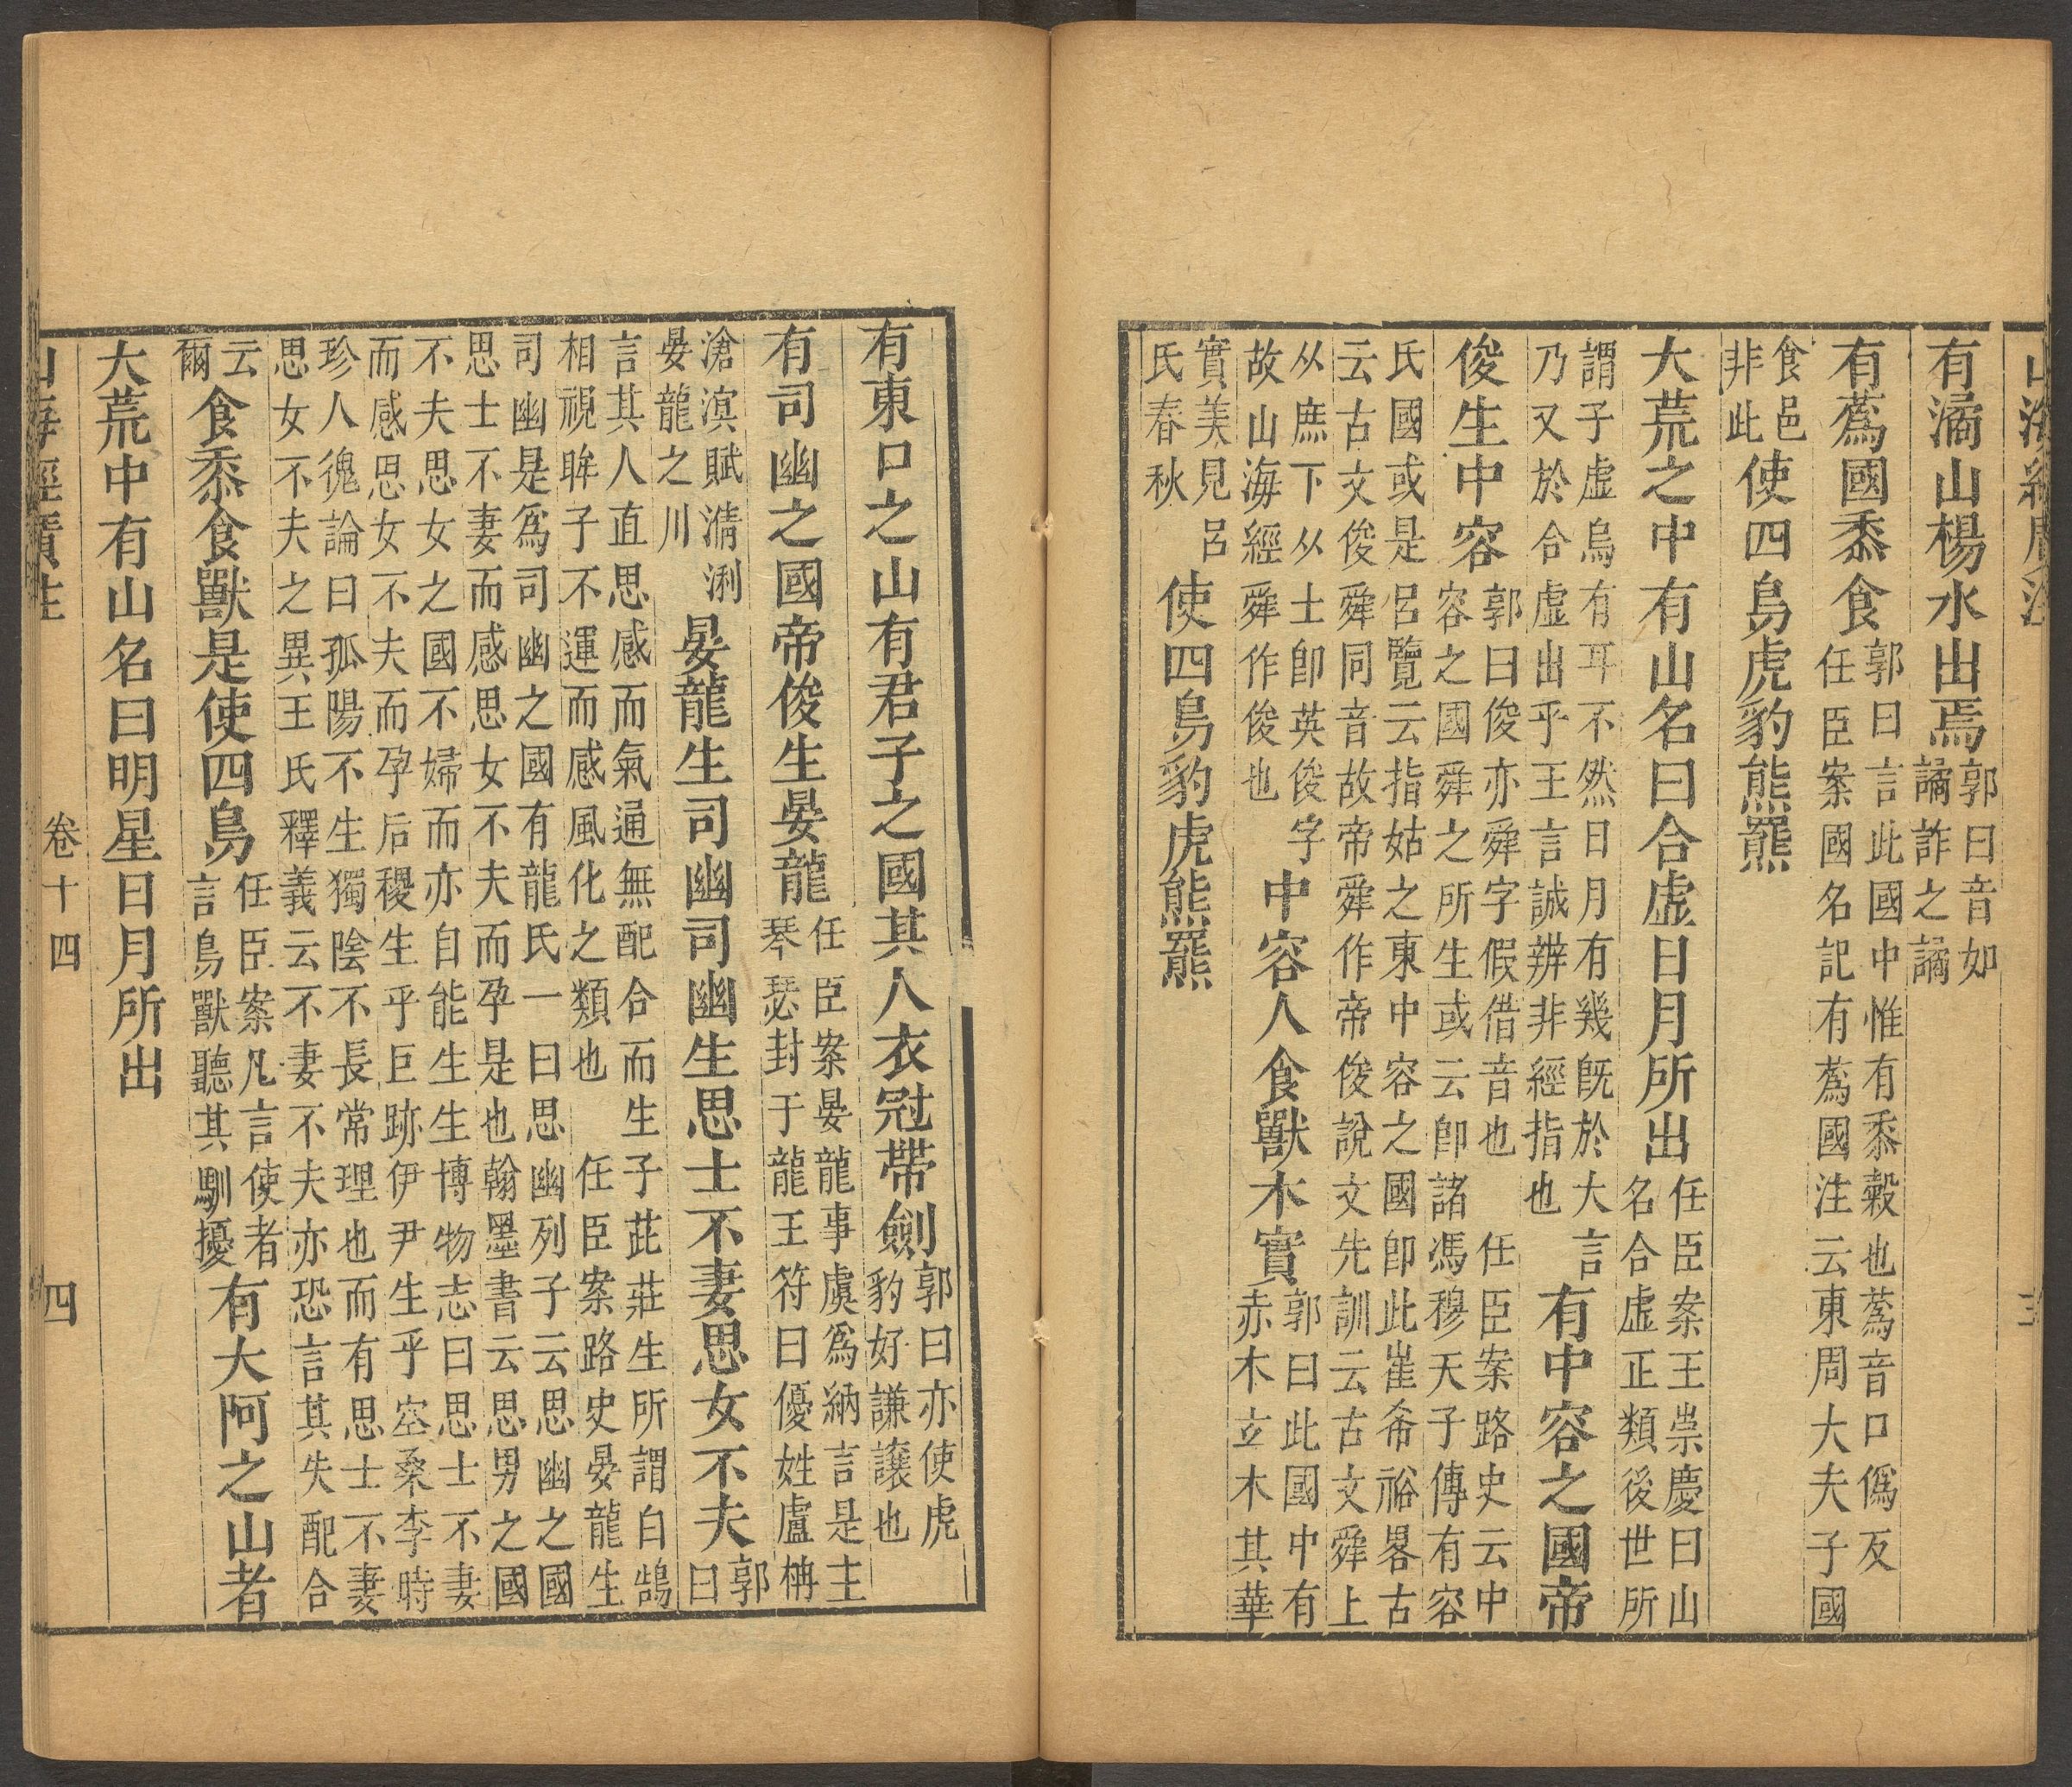 山海經廣注 三
有潏山楊水出焉
郭曰音如
譎詐之譎
有蔿國黍食
郭曰言此國中惟有黍穀也蔿音口僞反
任臣案國名記有蔿國注云東周大夫子國
食邑
非此
使四鳥虎豹熊羆
大荒之中有山名曰合虛日月所出
任臣案王崇慶曰山
名合虛正類後世所
謂子虛烏有耳不然日月有幾旣於大言
乃又於合虛出乎王言誠辨非經指也
有中容之國帝
俊生中容
郭曰俊亦舜字假借音也 任臣案路史云中
容之國舜之所生或云卽諸馮穆天子傳有容
氏國或是呂覽云指姑之東中容之國卽此崔希裕畧古
云古文俊舜同音故帝舜作帝俊說文先訓云古文舜上
从庶下从士卽英俊字
故山海經舜作俊也
中容人食獸木實
郭曰此國中有
赤木立木其華
實美見呂
氏春秋
使四鳥豹虎熊羆
有東口之山有君子之國其人衣冠帶劍
郭曰亦使虎
豹好謙讓也
有司幽之國帝俊生晏龍
任臣案晏龍事虞爲納言是主
琴瑟封于龍王符曰優姓盧柟
滄溟賦淸浰
晏龍之川
晏龍生司幽司幽生思士不妻思女不夫
郭
曰
言其人直思感而氣通無配合而生子茈莊生所謂白鵠
相視眸子不運而感風化之類也 任臣案路史晏龍生
司幽是爲司幽之國有龍氏一曰思幽列子云思幽之國
思士不妻而感思女不夫而孕是也翰墨書云思男之國
不夫思女之國不婦而亦自能生生博物志曰思士不妻
而感思女不夫而孕后稷生乎巨跡伊尹生乎空桑李時
珍人傀論曰孤陽不生獨陰不長常理也而有思士不妻
思女不夫之異王氏釋義云不妻不夫亦恐言其失配合
云
爾
食黍食獸是使四鳥
任臣案凡言使者
言鳥獸聽其馴擾
有大阿之山者
大荒中有山名曰明星日月所出
山海經廣注 卷十四 四